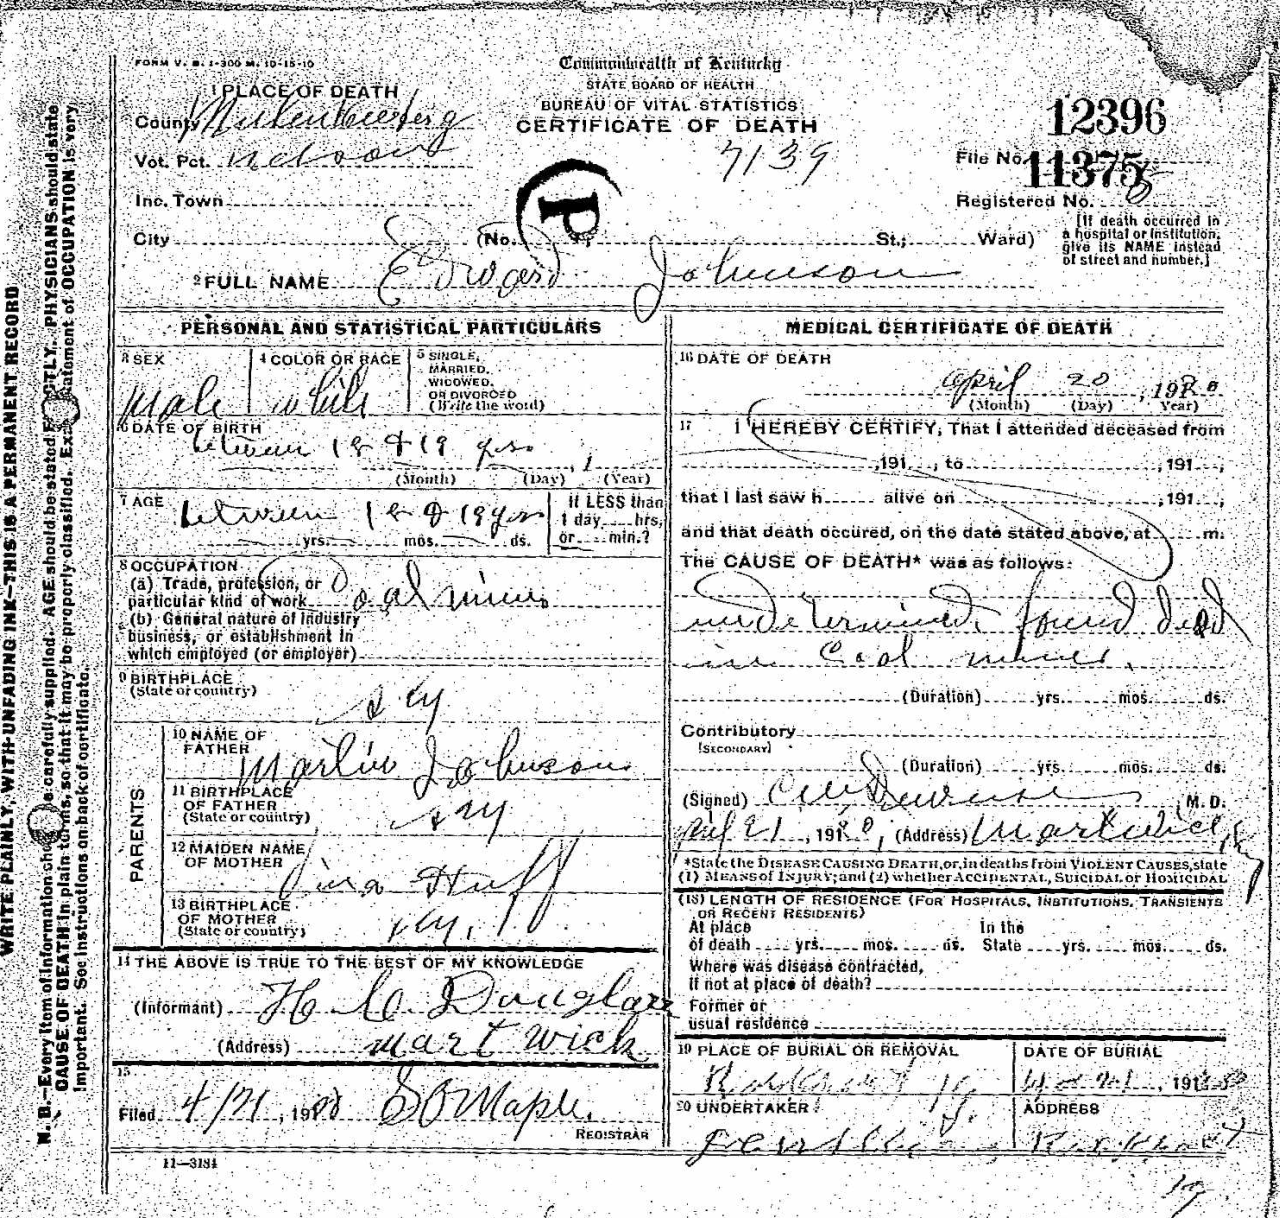 FORM V. S. 1-300 M. 10-15-10
Commonwealth of Kentucky
STATE BOARD OF HEALTH
BUREAU OF VITAL STATISTICS
CERTIFICATE OF DEATH
1 PLACE OF DEATH
County Muhlenberg
Vot. Pct. Nelson
Inc. Town
City (No. St.; Ward)
7139
P
12396
File No. 11375
Registered No. 6
[If death occurred in
a hospital or institution,
give its NAME instead
of street and number.]
2 FULL NAME Edward Johnson
PERSONAL AND STATISTICAL PARTICULARS
3 SEX
Male
4 COLOR OR RACE
white
5 SINGLE,
MARRIED,
WIDOWED,
OR DIVORCED
(Write the word)
6 DATE OF BIRTH
between 18 & 19 yrs
(Month) (Day) , 1 (Year)
7 AGE
between 18 & 19 yrs
yrs. mos. ds.
If LESS than
1 day hrs.
or min.?
8 OCCUPATION
(a) Trade, profession, or
particular kind of work Coal miner
(b) General nature of industry
business, or establishment in
which employed (or employer)
9 BIRTHPLACE
(State or country)
Ky
10 NAME OF
FATHER
Martin Johnson
11 BIRTHPLACE
OF FATHER
(State or country)
Ky
12 MAIDEN NAME
OF MOTHER
Huff
13 BIRTHPLACE
OF MOTHER
(State or country)
Ky.
PARENTS
14 THE ABOVE IS TRUE TO THE BEST OF MY KNOWLEDGE
(Informant) H C Douglass
(Address) Mart wick
15
Filed 4/21, 19 S O Maple.
REGISTRAR
11—3184
MEDICAL CERTIFICATE OF DEATH
16 DATE OF DEATH
April 20, 1920
(Month) (Day) Year)
17 I HEREBY CERTIFY, That I attended deceased from
, 191 , to , 191 ,
that I last saw h alive on , 191 ,
and that death occured, on the date stated above, at m.
The CAUSE OF DEATH* was as follows:
undetermined, found dead
in Coal mines.
(Duration) yrs. mos. ds.
Contributory
[SECONDARY]
(Duration) yrs. mos. ds.
(Signed) , M. D.
April 21, 1920, (Address) Martwick, Ky
*State the DISEASE CAUSING DEATH, or, in deaths from VIOLENT CAUSES, state
(1) MEANS of INJURY; and (2) whether ACCIDENTAL, SUICIDAL or HOMICIDAL
(18) LENGTH OF RESIDENCE (FOR HOSPITALS, INSTITUTIONS, TRANSIENTS
OR RECENT RESIDENTS)
At place In the
of death yrs. mos. ds. State yrs. mos. ds.
Where was disease contracted,
If not at place of death?
Former or
usual residence
19 PLACE OF BURIAL OR REMOVAL
Ky.
DATE OF BURIAL
20 UNDERTAKER
ADDRESS
Ky
WRITE PLAINLY, WITH UNFADING INK—THIS IS A PERMANENT RECORD
N. B.—Every item of information should be carefully supplied. AGE should be stated EXACTLY. PHYSICIANS should state
CAUSE OF DEATH in plain terms, so that it may be properly classified. Exact statement of OCCUPATION is very
important. See instructions on back of certificate.